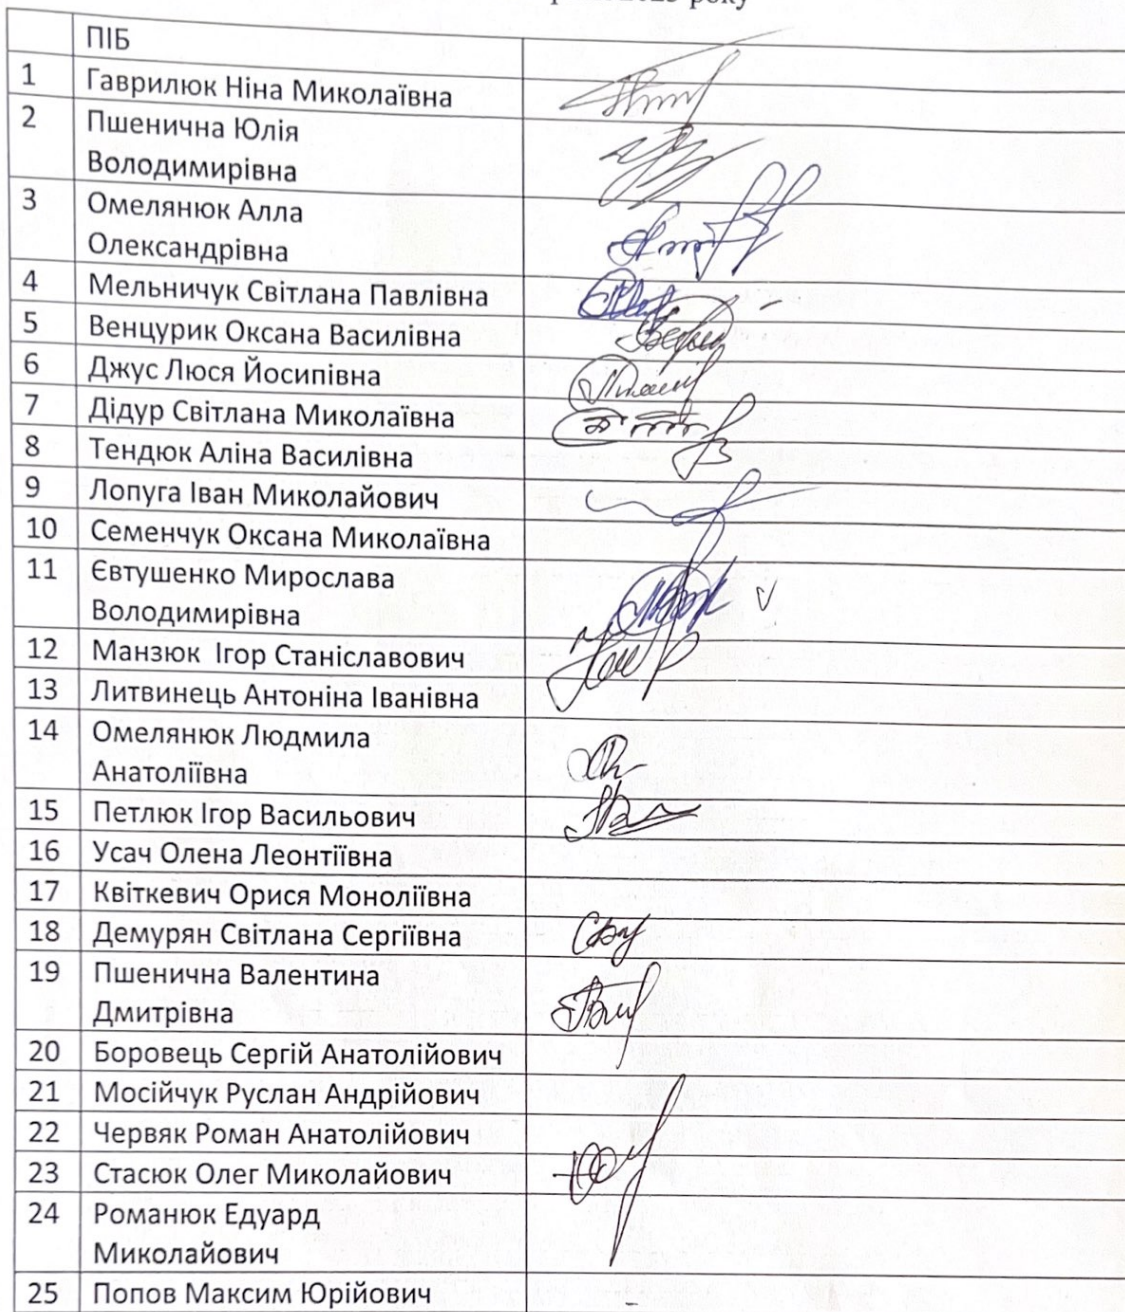 2023 року
ПІБ
1 Гаврилюк Ніна Миколаївна
2 Пшенична Юлія
Володимирівна
3 Омелянюк Алла
Олександрівна
4 Мельничук Світлана Павлівна
5 Венцурик Оксана Василівна
6 Джус Люся Йосипівна
7 Дідур Світлана Миколаївна
8 Тендюк Аліна Василівна
9 Лопуга Іван Миколайович
10 Семенчук Оксана Миколаївна
11 Євтушенко Мирослава
Володимирівна
12 Манзюк Ігор Станіславович
13 Литвинець Антоніна Іванівна
14 Омелянюк Людмила
Анатоліївна
15 Петлюк Ігор Васильович
16 Усач Олена Леонтіївна
17 Квіткевич Орися Моноліївна
18 Демурян Світлана Сергіївна
19 Пшенична Валентина
Дмитрівна
20 Боровець Сергій Анатолійович
21 Мосійчук Руслан Андрійович
22 Червяк Роман Анатолійович
23 Стасюк Олег Миколайович
24 Романюк Едуард
Миколайович
25 Попов Максим Юрійович